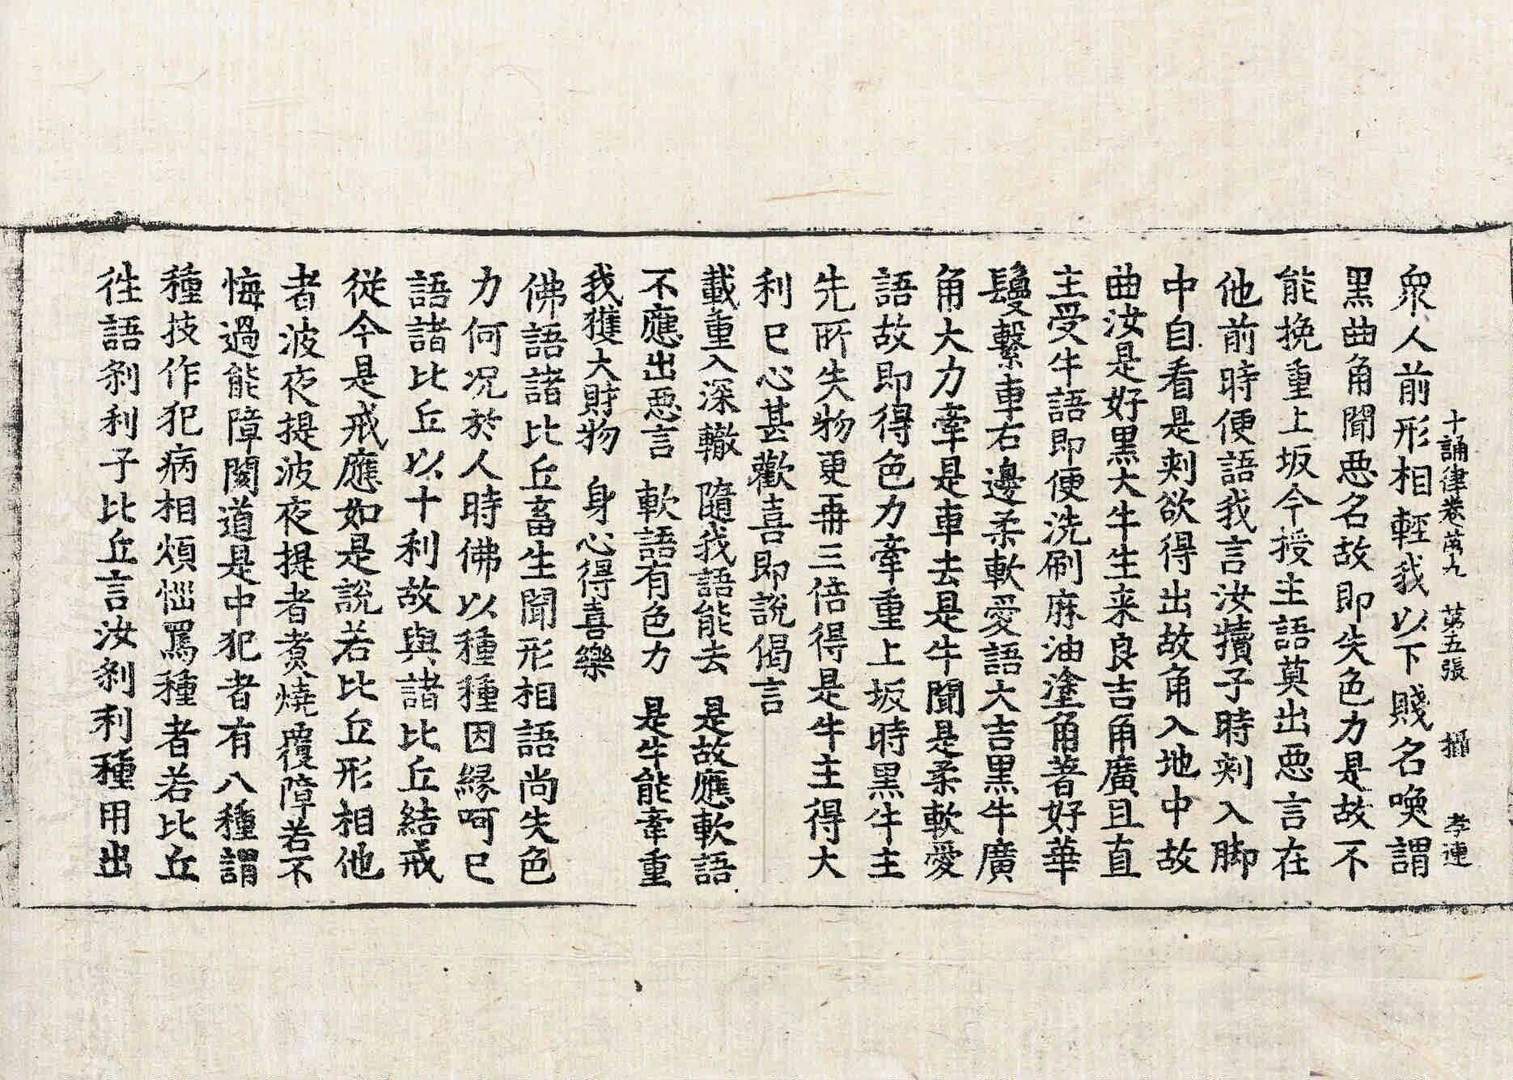 十誦律卷苐九　苐五張　攝　孝連
衆人前形相輕我以下賤名喚謂
黒曲角聞惡名故即失色力是故不
能挽重上坂今授主語莫出惡言在
他前時便語我言汝犢子時刺入脚
中自看是刺欲得出故角入地中故
曲汝是好黒大牛生来良吉角廣且直
主受牛語即便洗刷麻油塗角著好華
鬘繫車右邊柔軟愛語大吉黒牛廣
角大力牽是車去是牛聞是柔軟愛
語故即得色力牽重上坂時黒牛主
先所失物更再三倍得是牛主得大
利已心甚歡喜即說偈言
載重入深轍　隨我語能去　是故應軟語
不應出惡言　軟語有色力　是牛能牽重
我獲大財物　身心得喜樂
佛語諸比丘畜生聞形相語尚失色
力何况於人時佛以種種因緣呵已
語諸比丘以十利故與諸比丘結戒
從今是戒應如是說若比丘形相他
者波夜提波夜提者煑燒覆障若不
悔過能障閡道是中犯者有八種謂
種技作犯病相煩惱罵種者若比丘
往語剎利子比丘言汝剎利種用出